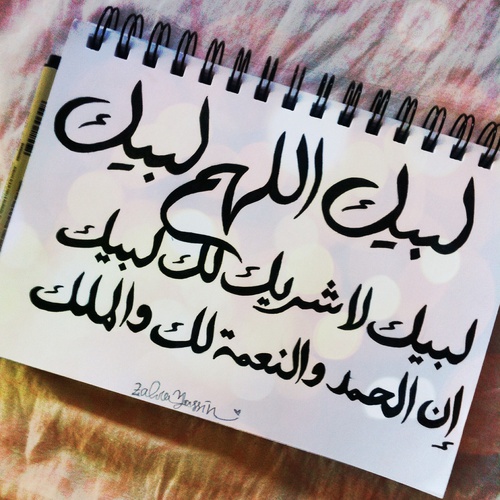 لبيك اللهم لبيك
لبيك لا شريك لك لبيك
إن الحمد والنعمة لك والملك
Zahra Yassin